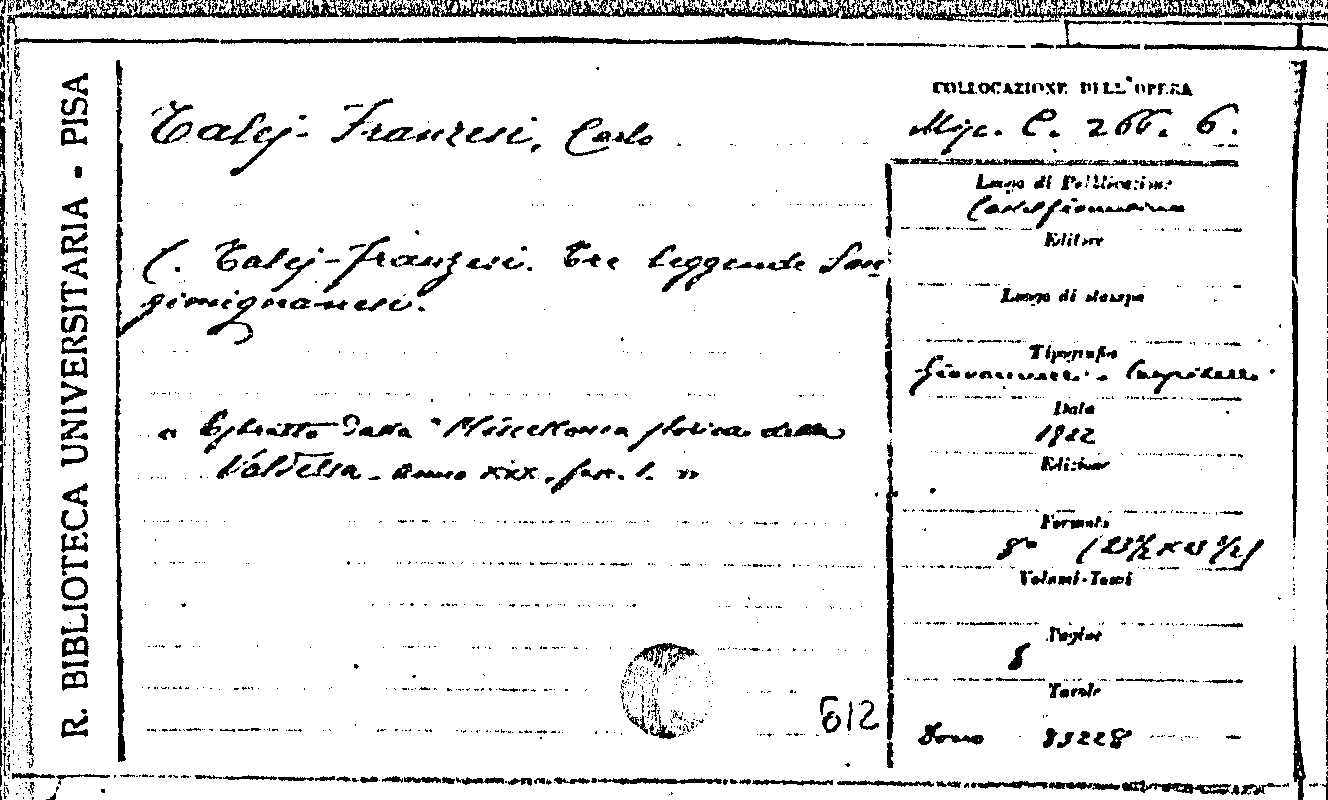 R. BIBLIOTECA UNIVERSITARIA - PISA
COLLOCAZIONE DELL'OPERA
Talej-Franzesi, Carlo
Misc. C. 266. 6.
Luogo di Pubblicazione
Castelfiorentino
C. Talej-Franzesi. Tre leggende San
gimignanesi.
Editore
Luogo di stampa
Tipografia
Giovannelli e Carpitelli
« Estratto dalla "Miscellanea storica della
Valdelsa. Anno XXX, fasc. 1. »
Data
1922
Edizione
Formato
8°
Volumi-Tomi
Pagine
8
Tavole
612
Dono